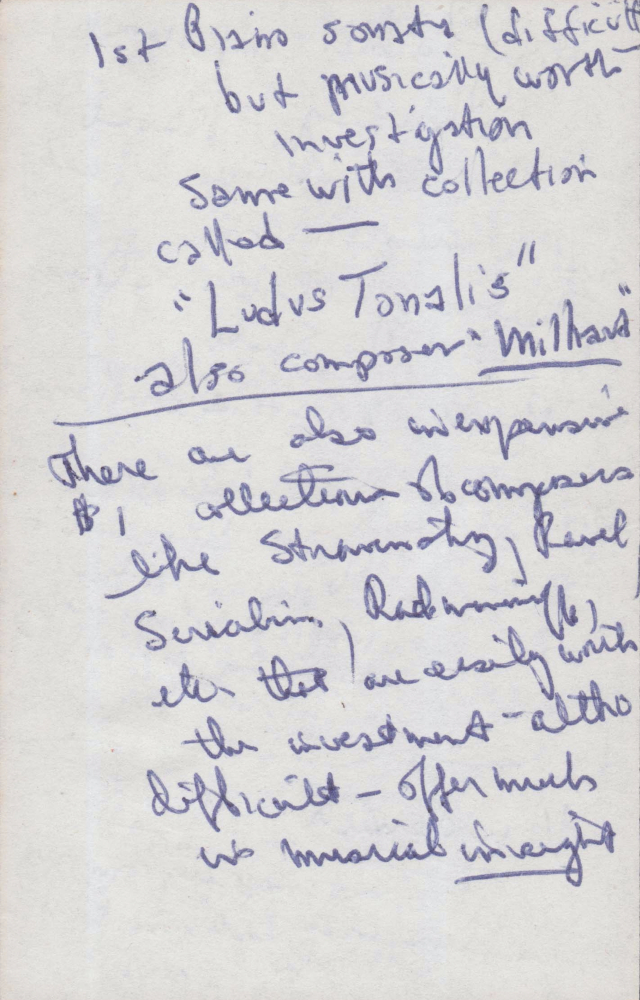 1st Piano sonata (difficult
but musically worth
investigation
same with collection
called —
"Ludus Tonalis"
also composer "Milhaud"
There are also inexpensive
$1 collections of composers
like Stravinsky, Ravel
Scriabin, Rachmaninoff,
etc that are easily worth
the investment - altho
difficult - offer much
in musical insight